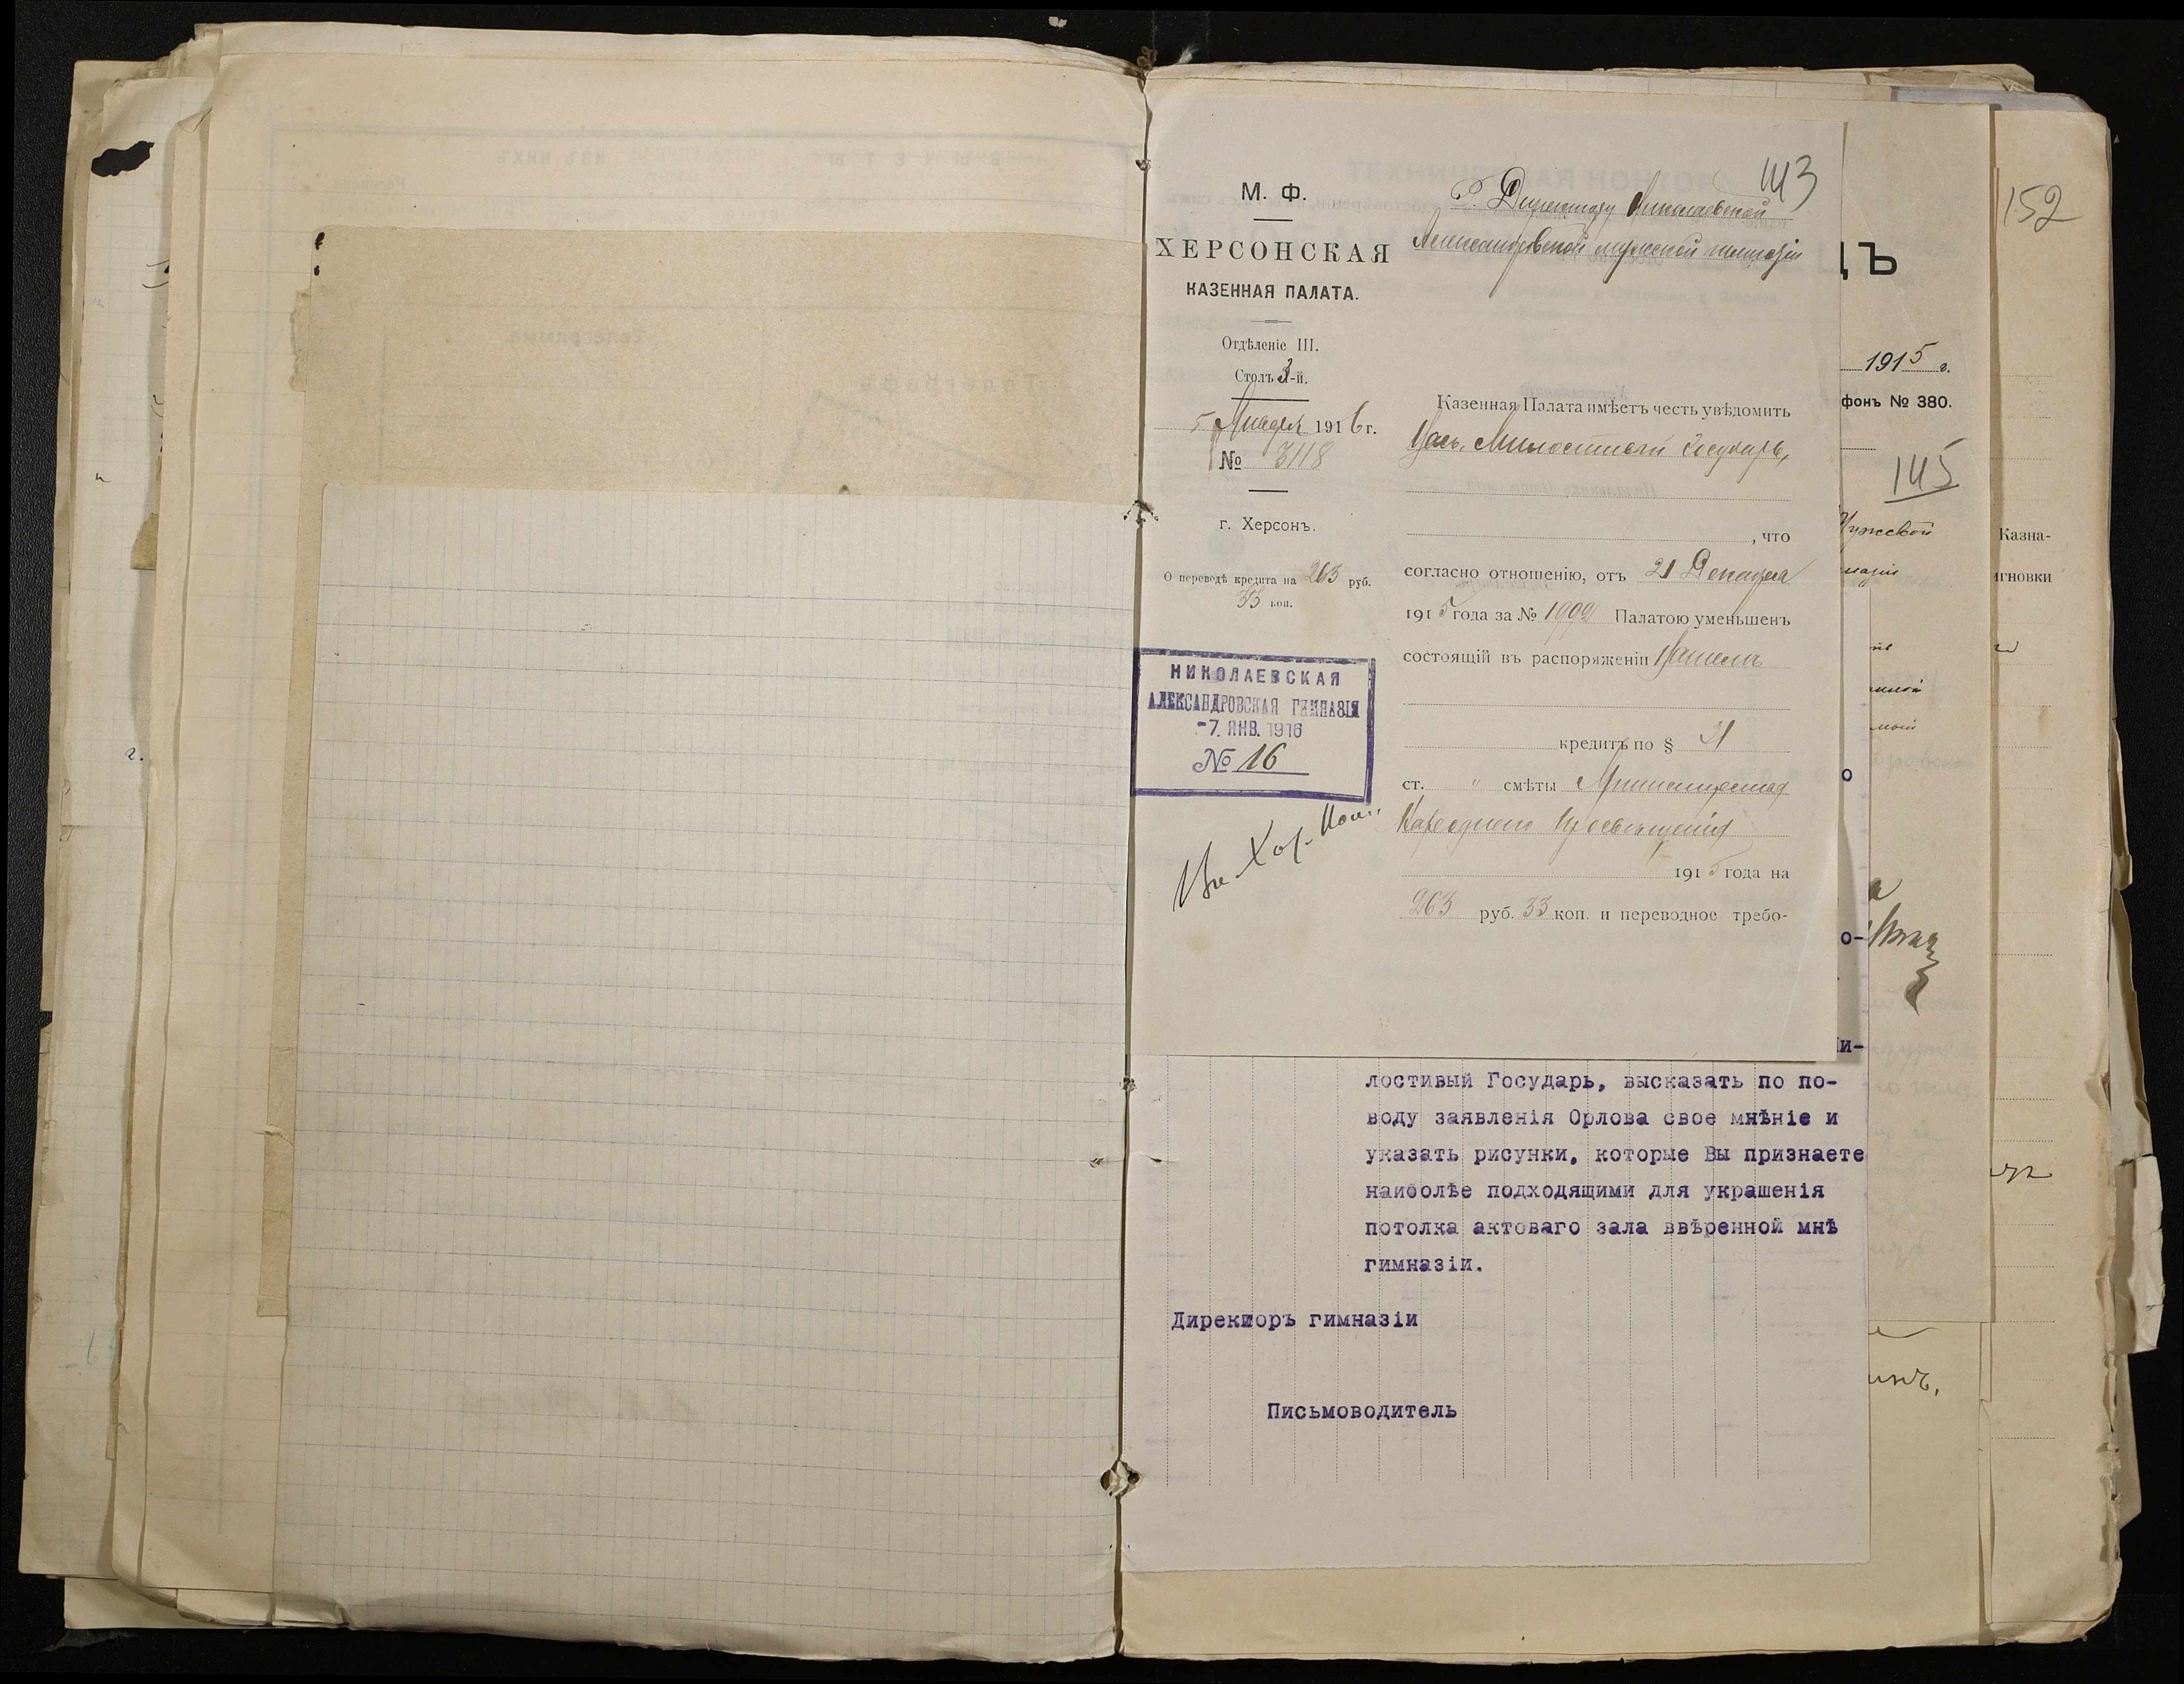 143
М. Ф.
ХЕРСОНСКАЯ
КАЗЕННАЯ ПАЛАТА.
Отдѣленіе III.
Столъ 3-й.
5 Января 1916 г.
№ 3118
г. Херсонъ.
О переводѣ кредита на 263 руб.
33 коп.
НИКОЛАЕВСКАЯ
АЛЕКСАНДРОВСКАЯ ГИМНАЗІЯ
-7. ЯНВ. 1916
№ 16
Г. Директору Николаевской
Александровской мужской гимназіи
Казенная Палата имѣетъ честь увѣдомить
Васъ, Милостивый Государь,
, что
согласно отношенію, отъ 21 Декабря
1915 года за № 1992 Палатою уменьшенъ
состоящій въ распоряженіи Вашемъ
кредитъ по § 21
ст. " смѣты Министерства
Народнаго Просвѣщенія
1915 года на
263 руб. 33 коп. и переводное требо-
лостивый Государь, высказать по по-
воду заявленія Орлова свое мнѣніе и
указать рисунки, которые Вы признаете
наиболѣе подходящими для украшенія
потолка актоваго зала ввѣренной мнѣ
гимназіи.
Директоръ гимназіи
Письмоводитель
Ъ
1915 г.
фонъ № 380.
145
о
о-
и-
152
Казна-
игновки
г.